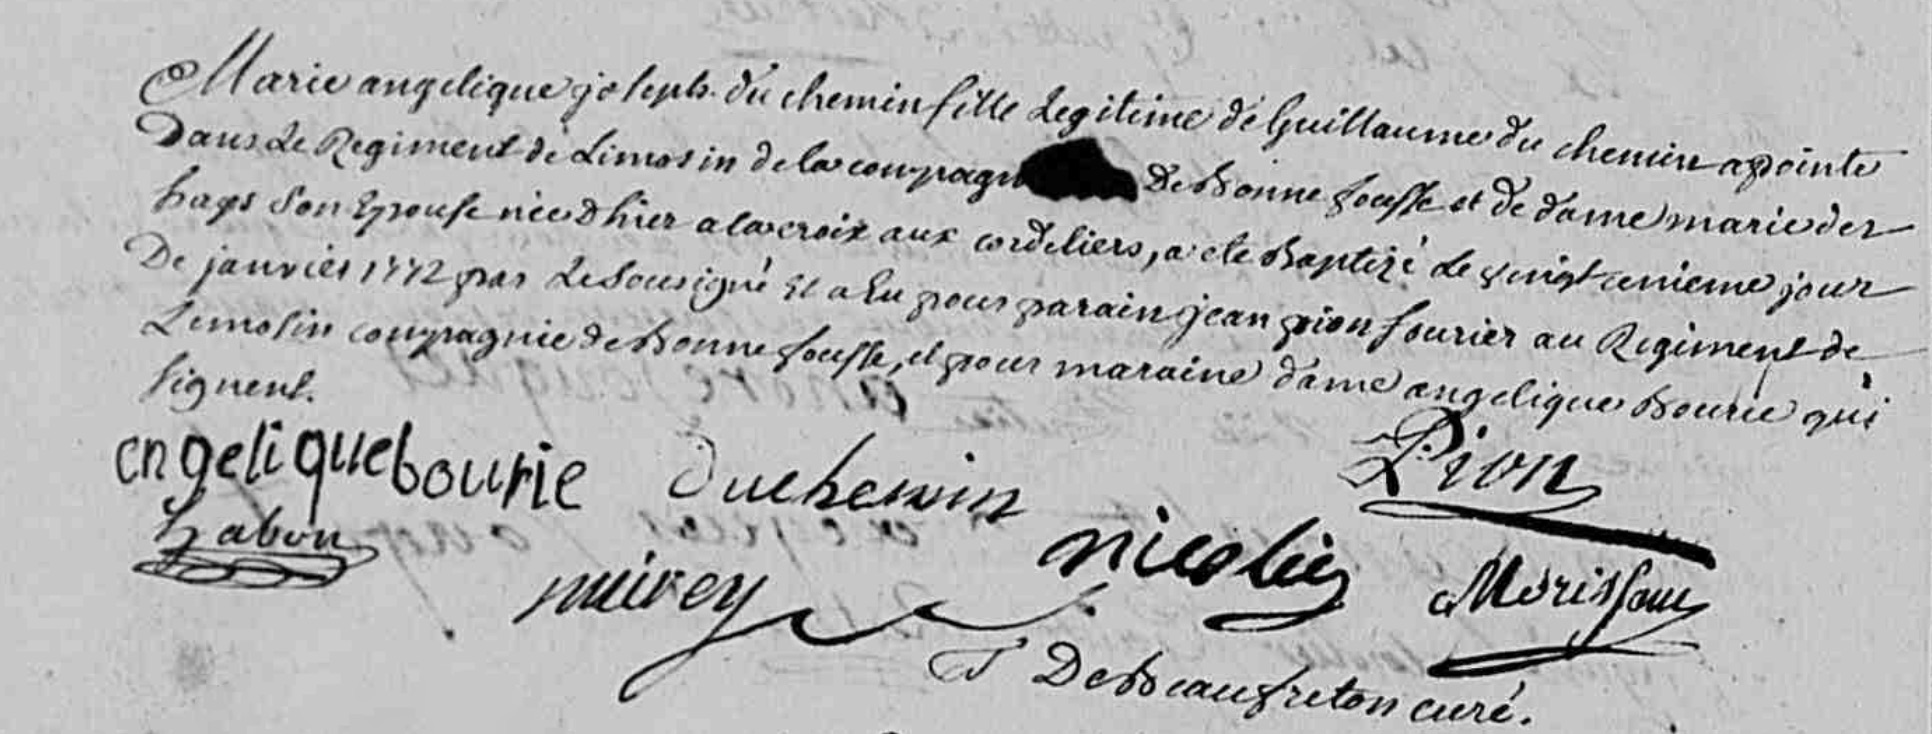 Marie angelique joseph du chemin fille Legitime de Guillaume du chemin apointé
Dans Le Regiment de Limosin de la compagn De Bonne fousse et de dame marie des
hays son Epouse née dhier a la croix aux cordeliers, a ete Baptizé Le vingt unieme jour
De janvier 1772 par Le Sousigné Et a Eu pour parain jean pion fourier au Regiment de
Limosin compagnie de Bonne fousse, et pour maraine dame angelique Bourie qui
signent.
engelique bourie duchemin Pion
habon nicolies Morisseau
mirey
De Beaufreton curé.